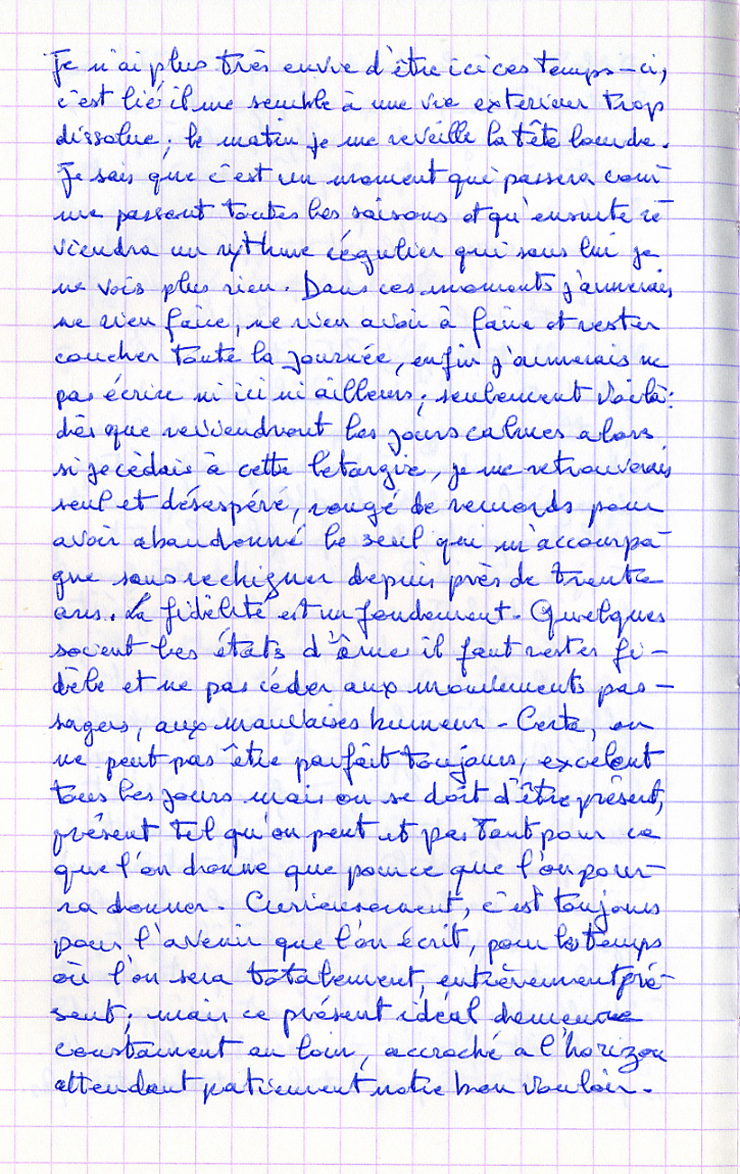 Je n'ai plus très envie d'être ici ces temps-ci,
c'est lié il me semble à une vie exterieur trop
dissolue; le matin je me reveille la tête lourde.
Je sais que c'est un moment qui passera com
me passent toutes les saisons et qu'ensuite re
viendra un rythme régulier qui sans lui je
ne vois plus rien. Dans ces moments j'aimerais
ne rien faire, ne rien avoir à faire et rester
coucher toute la journée, enfin j'aimerais ne
pas écrire ni ici ni ailleurs; seulement voilà:
dès que reviendront les jours calmes alors
si je cédais à cette létargie, je me retrouverais
seul et désespéré, rongé de remords pour
avoir abandonné le seul qui m'accompa
gne sans rechigner depuis près de trente
ans. La fidélité est un fondement. Quelques
soient les états d'âme il faut rester fi-
dèle et ne pas céder aux mouvements pas-
sagers, aux mauvaises humeur - Certe, on
ne peut pas être parfait toujours, excelent
tous les jours mais on se doit d'être présent,
présent tel qu'on peut et pas tant pour ce
que l'on donne que pour ce que l'on pour-
ra donner. Curieusement, c'est toujours
pour l'avenir que l'on écrit, pour le temps
où l'on sera totalement, entièrement pré-
sent; mais ce présent idéal demeure
constament au loin, accroché a l'horizon
attendant patiemment notre bon vouloir.